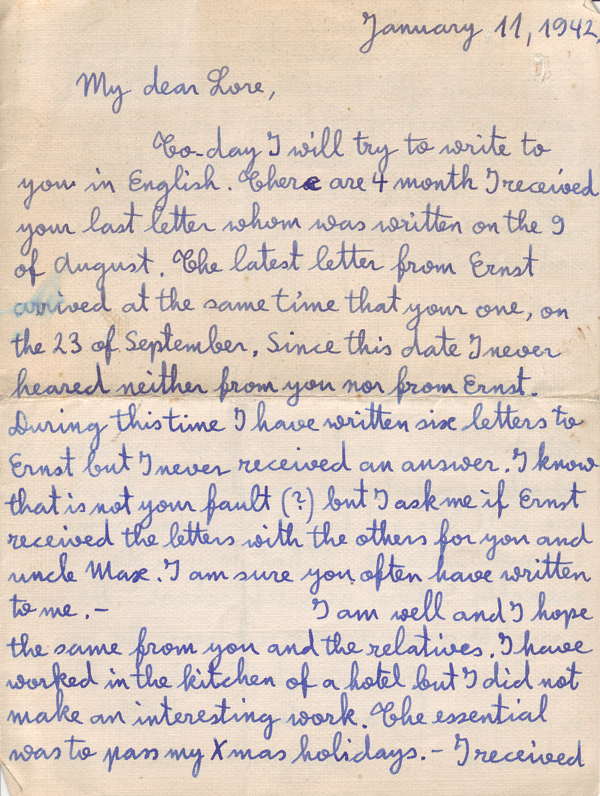 January 11, 1942.
My dear Lore,
To-day I will try to write to
you in English. There are 4 month I received
your last letter whom was written on the 9
of August. The latest letter from Ernst
arrived at the same time that your one, on
the 23 of September. Since this date I never
heared neither from you nor from Ernst.
During this time I have written six letters to
Ernst but I never received an answer. I know
that is not your fault (?) but I ask me if Ernst
received the letters with the others for you and
uncle Max. I am sure you often have written
to me. — I am well and I hope
the same from you and the relatives. I have
worked in the kitchen of a hotel but I did not
make an interesting work. The essential
was to pass my Xmas holidays. — I received